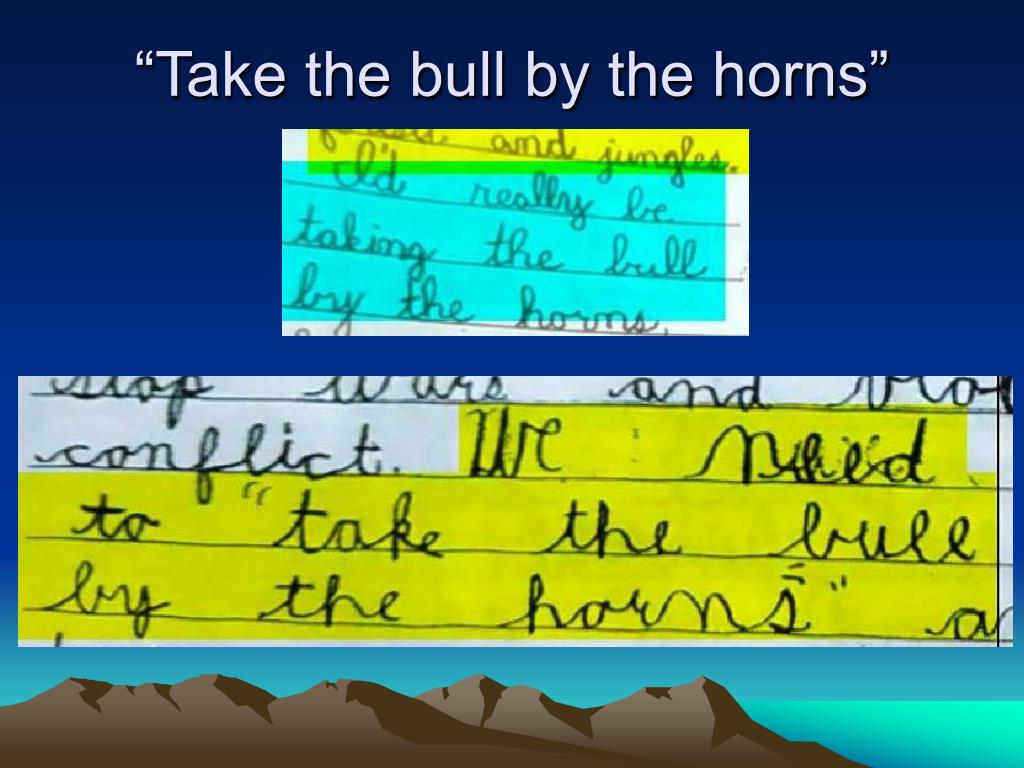 “Take the bull by the horns”
and jungles.
I'd really be
taking the bull
by the horns.
stop wars and
conflict. We need
to “take the bull
by the horns” a